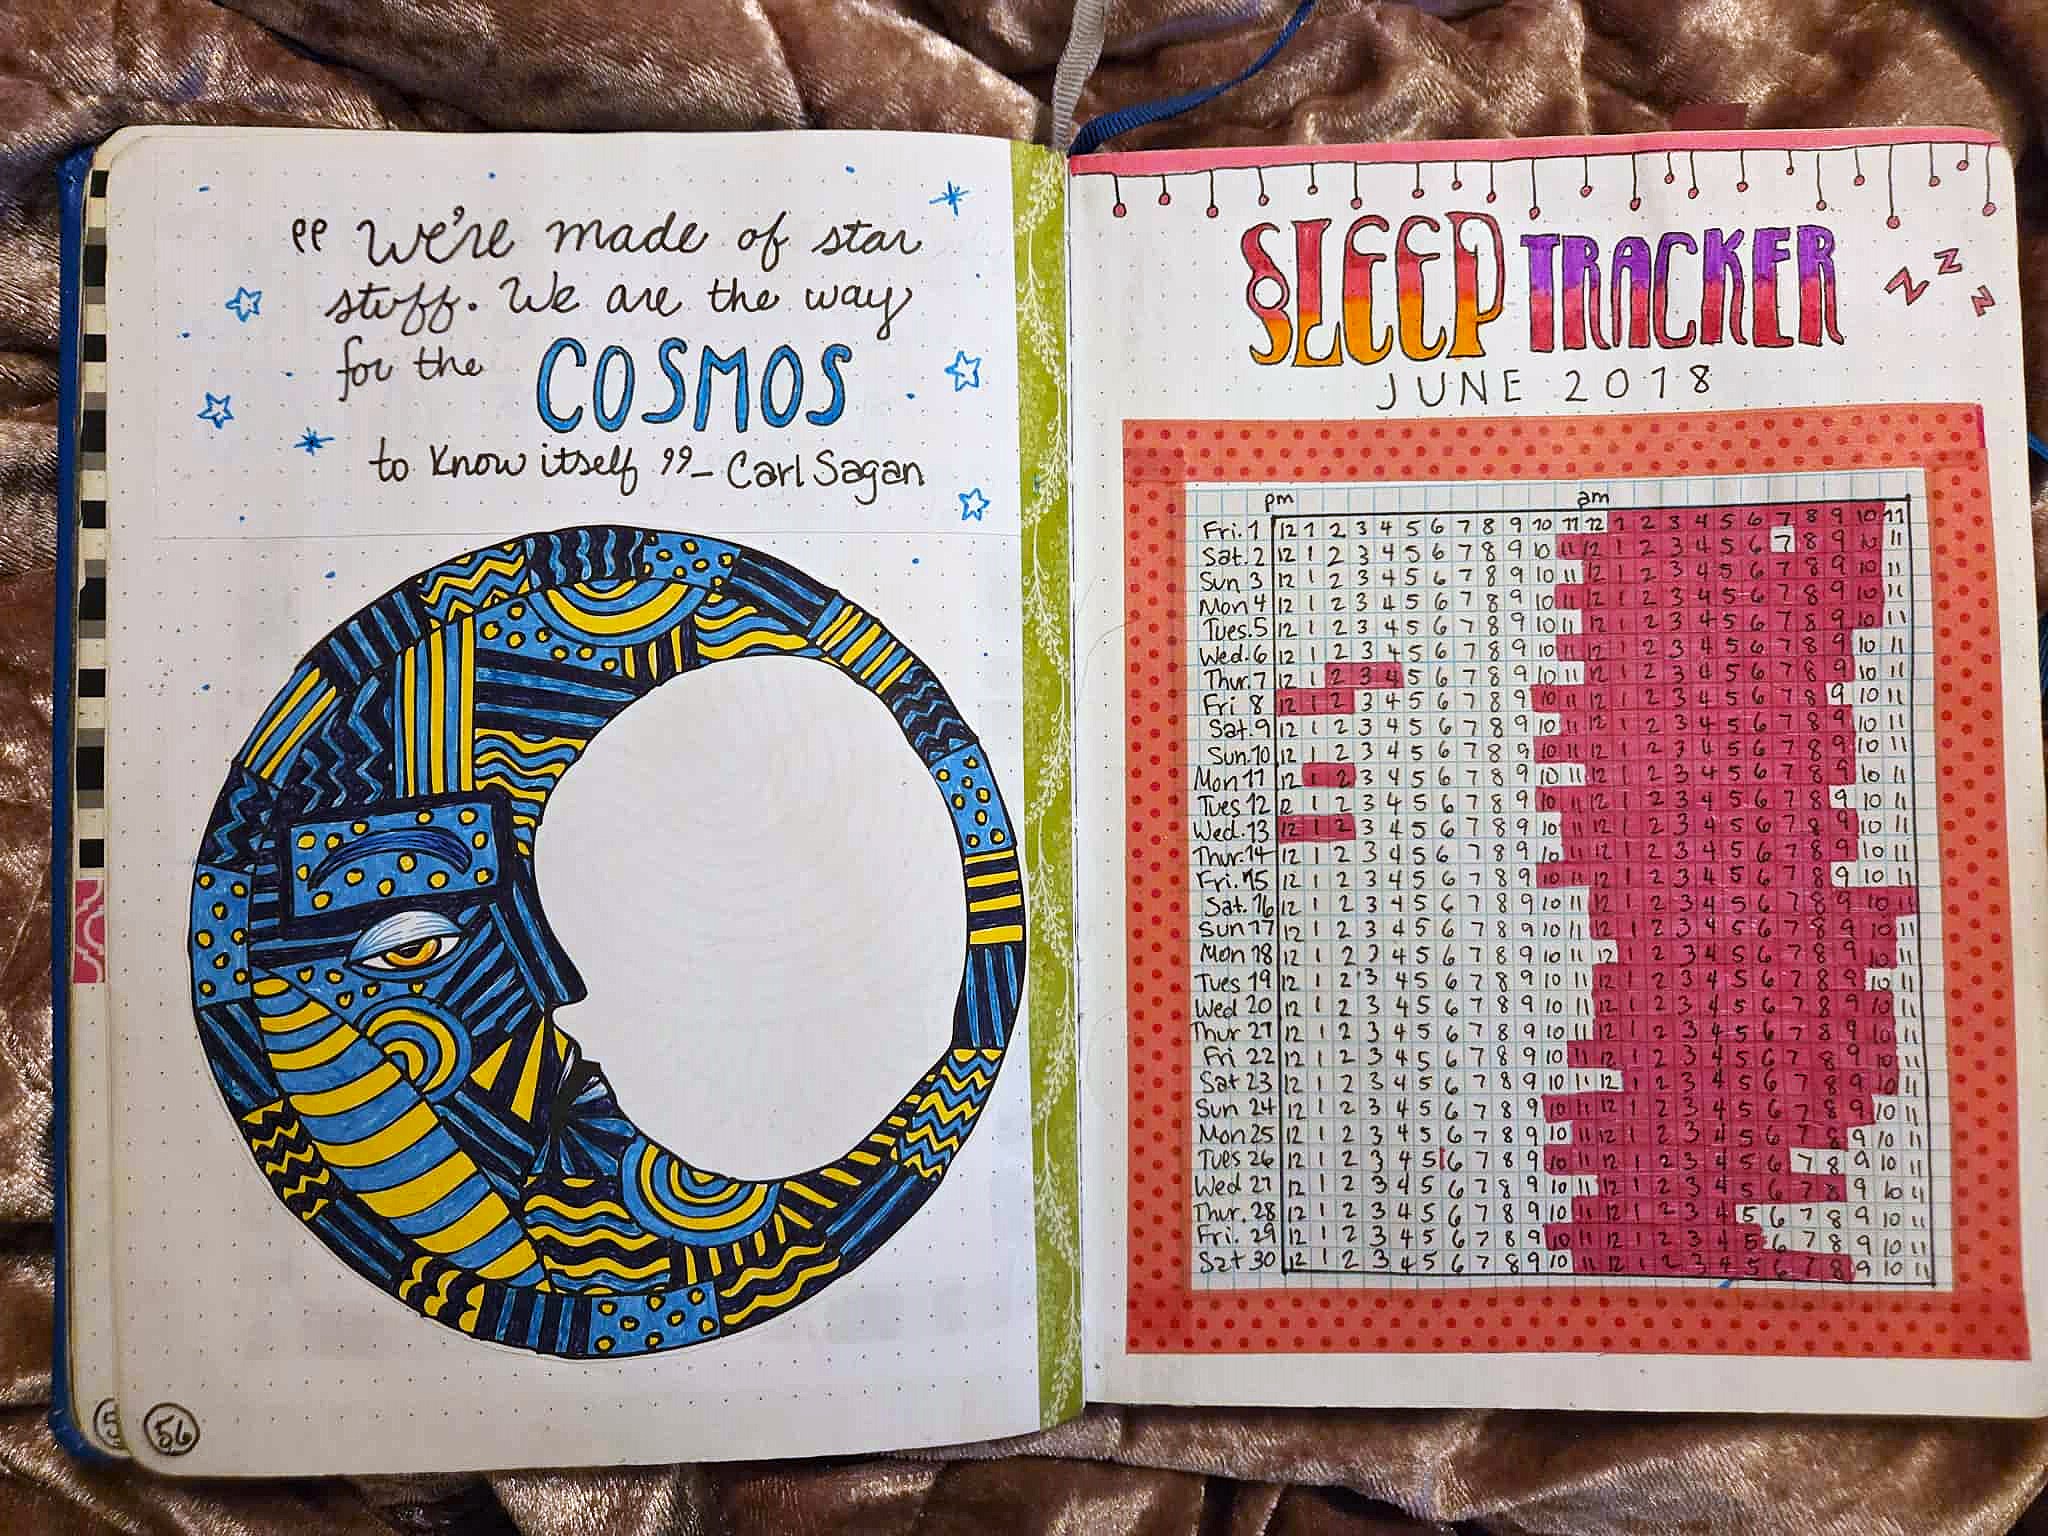 “We're made of star
stuff. We are the way
for the COSMOS
to know itself” – Carl Sagan
56
SLEEP TRACKER
z z z
JUNE 2018
pm am
Fri. 1 12 1 2 3 4 5 6 7 8 9 10 11 12 1 2 3 4 5 6 7 8 9 10 11
Sat. 2 12 1 2 3 4 5 6 7 8 9 10 11 12 1 2 3 4 5 6 7 8 9 10 11
Sun 3 12 1 2 3 4 5 6 7 8 9 10 11 12 1 2 3 4 5 6 7 8 9 10 11
Mon 4 12 1 2 3 4 5 6 7 8 9 10 11 12 1 2 3 4 5 6 7 8 9 10 11
Tues. 5 12 1 2 3 4 5 6 7 8 9 10 11 12 1 2 3 4 5 6 7 8 9 10 11
Wed. 6 12 1 2 3 4 5 6 7 8 9 10 11 12 1 2 3 4 5 6 7 8 9 10 11
Thur. 7 12 1 2 3 4 5 6 7 8 9 10 11 12 1 2 3 4 5 6 7 8 9 10 11
Fri 8 12 1 2 3 4 5 6 7 8 9 10 11 12 1 2 3 4 5 6 7 8 9 10 11
Sat. 9 12 1 2 3 4 5 6 7 8 9 10 11 12 1 2 3 4 5 6 7 8 9 10 11
Sun. 10 12 1 2 3 4 5 6 7 8 9 10 11 12 1 2 3 4 5 6 7 8 9 10 11
Mon 11 12 1 2 3 4 5 6 7 8 9 10 11 12 1 2 3 4 5 6 7 8 9 10 11
Tues 12 12 1 2 3 4 5 6 7 8 9 10 11 12 1 2 3 4 5 6 7 8 9 10 11
Wed. 13 12 1 2 3 4 5 6 7 8 9 10 11 12 1 2 3 4 5 6 7 8 9 10 11
Thur. 14 12 1 2 3 4 5 6 7 8 9 10 11 12 1 2 3 4 5 6 7 8 9 10 11
Fri. 15 12 1 2 3 4 5 6 7 8 9 10 11 12 1 2 3 4 5 6 7 8 9 10 11
Sat. 16 12 1 2 3 4 5 6 7 8 9 10 11 12 1 2 3 4 5 6 7 8 9 10 11
Sun 17 12 1 2 3 4 5 6 7 8 9 10 11 12 1 2 3 4 5 6 7 8 9 10 11
Mon 18 12 1 2 3 4 5 6 7 8 9 10 11 12 1 2 3 4 5 6 7 8 9 10 11
Tues 19 12 1 2 3 4 5 6 7 8 9 10 11 12 1 2 3 4 5 6 7 8 9 10 11
Wed 20 12 1 2 3 4 5 6 7 8 9 10 11 12 1 2 3 4 5 6 7 8 9 10 11
Thur 21 12 1 2 3 4 5 6 7 8 9 10 11 12 1 2 3 4 5 6 7 8 9 10 11
Fri 22 12 1 2 3 4 5 6 7 8 9 10 11 12 1 2 3 4 5 6 7 8 9 10 11
Sat 23 12 1 2 3 4 5 6 7 8 9 10 11 12 1 2 3 4 5 6 7 8 9 10 11
Sun 24 12 1 2 3 4 5 6 7 8 9 10 11 12 1 2 3 4 5 6 7 8 9 10 11
Mon 25 12 1 2 3 4 5 6 7 8 9 10 11 12 1 2 3 4 5 6 7 8 9 10 11
Tues 26 12 1 2 3 4 5 6 7 8 9 10 11 12 1 2 3 4 5 6 7 8 9 10 11
Wed 27 12 1 2 3 4 5 6 7 8 9 10 11 12 1 2 3 4 5 6 7 8 9 10 11
Thur. 28 12 1 2 3 4 5 6 7 8 9 10 11 12 1 2 3 4 5 6 7 8 9 10 11
Fri. 29 12 1 2 3 4 5 6 7 8 9 10 11 12 1 2 3 4 5 6 7 8 9 10 11
Sat 30 12 1 2 3 4 5 6 7 8 9 10 11 12 1 2 3 4 5 6 7 8 9 10 11